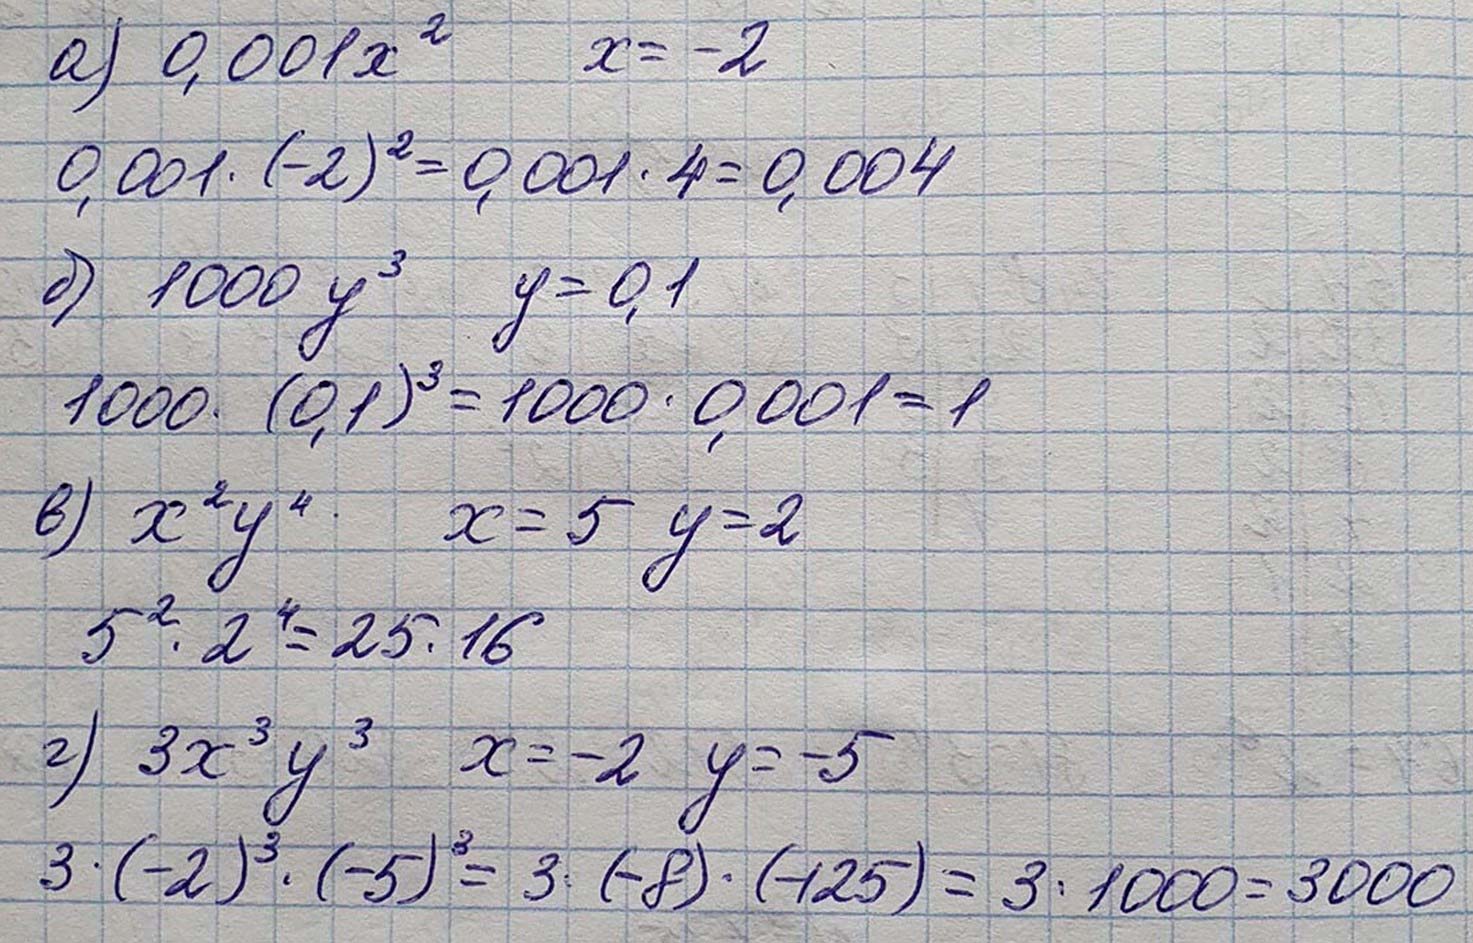 а) 0,001x² x = -2
0,001 · (-2)² = 0,001 · 4 = 0,004
б) 1000 y³ y = 0,1
1000 · (0,1)³ = 1000 · 0,001 = 1
в) x²y⁴ x = 5 y = 2
5² · 2⁴ = 25 · 16
г) 3x³y³ x = -2 y = -5
3 · (-2)³ · (-5)³ = 3 · (-8) · (-125) = 3 · 1000 = 3000